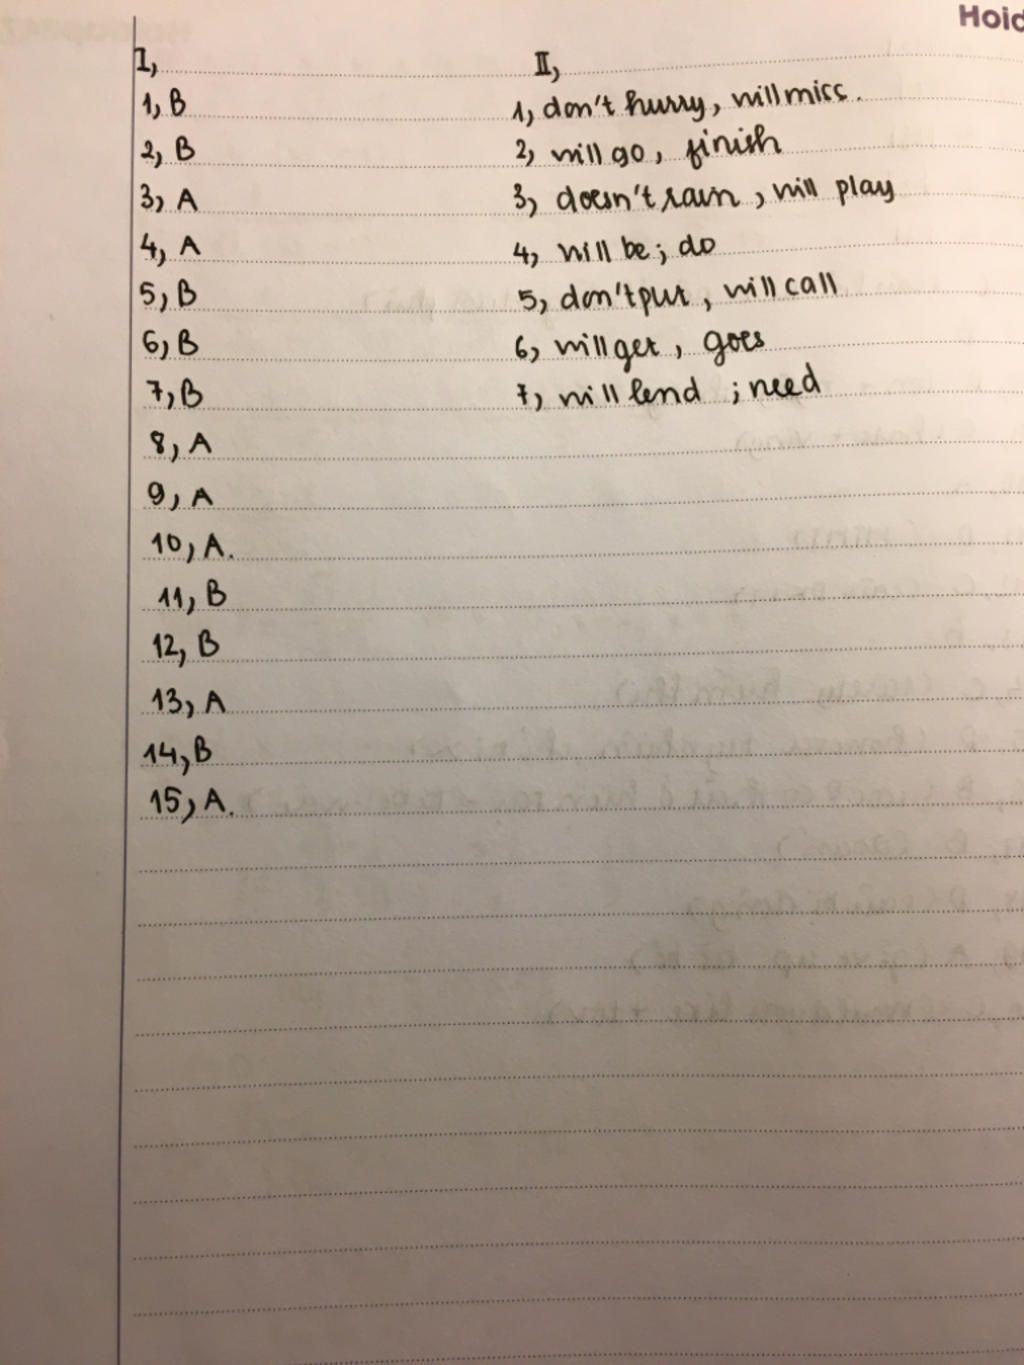 Hoid
I,
1, B
2, B
3, A
4, A
5, B
6, B
7, B
8, A
9, A
10, A.
11, B
12, B
13, A
14, B
15, A.
II,
1, don't hurry, will miss.
2, will go, finish
3, doesn't rain, will play
4, will be; do
5, don't put, will call
6, will get, goes
7, will lend; need